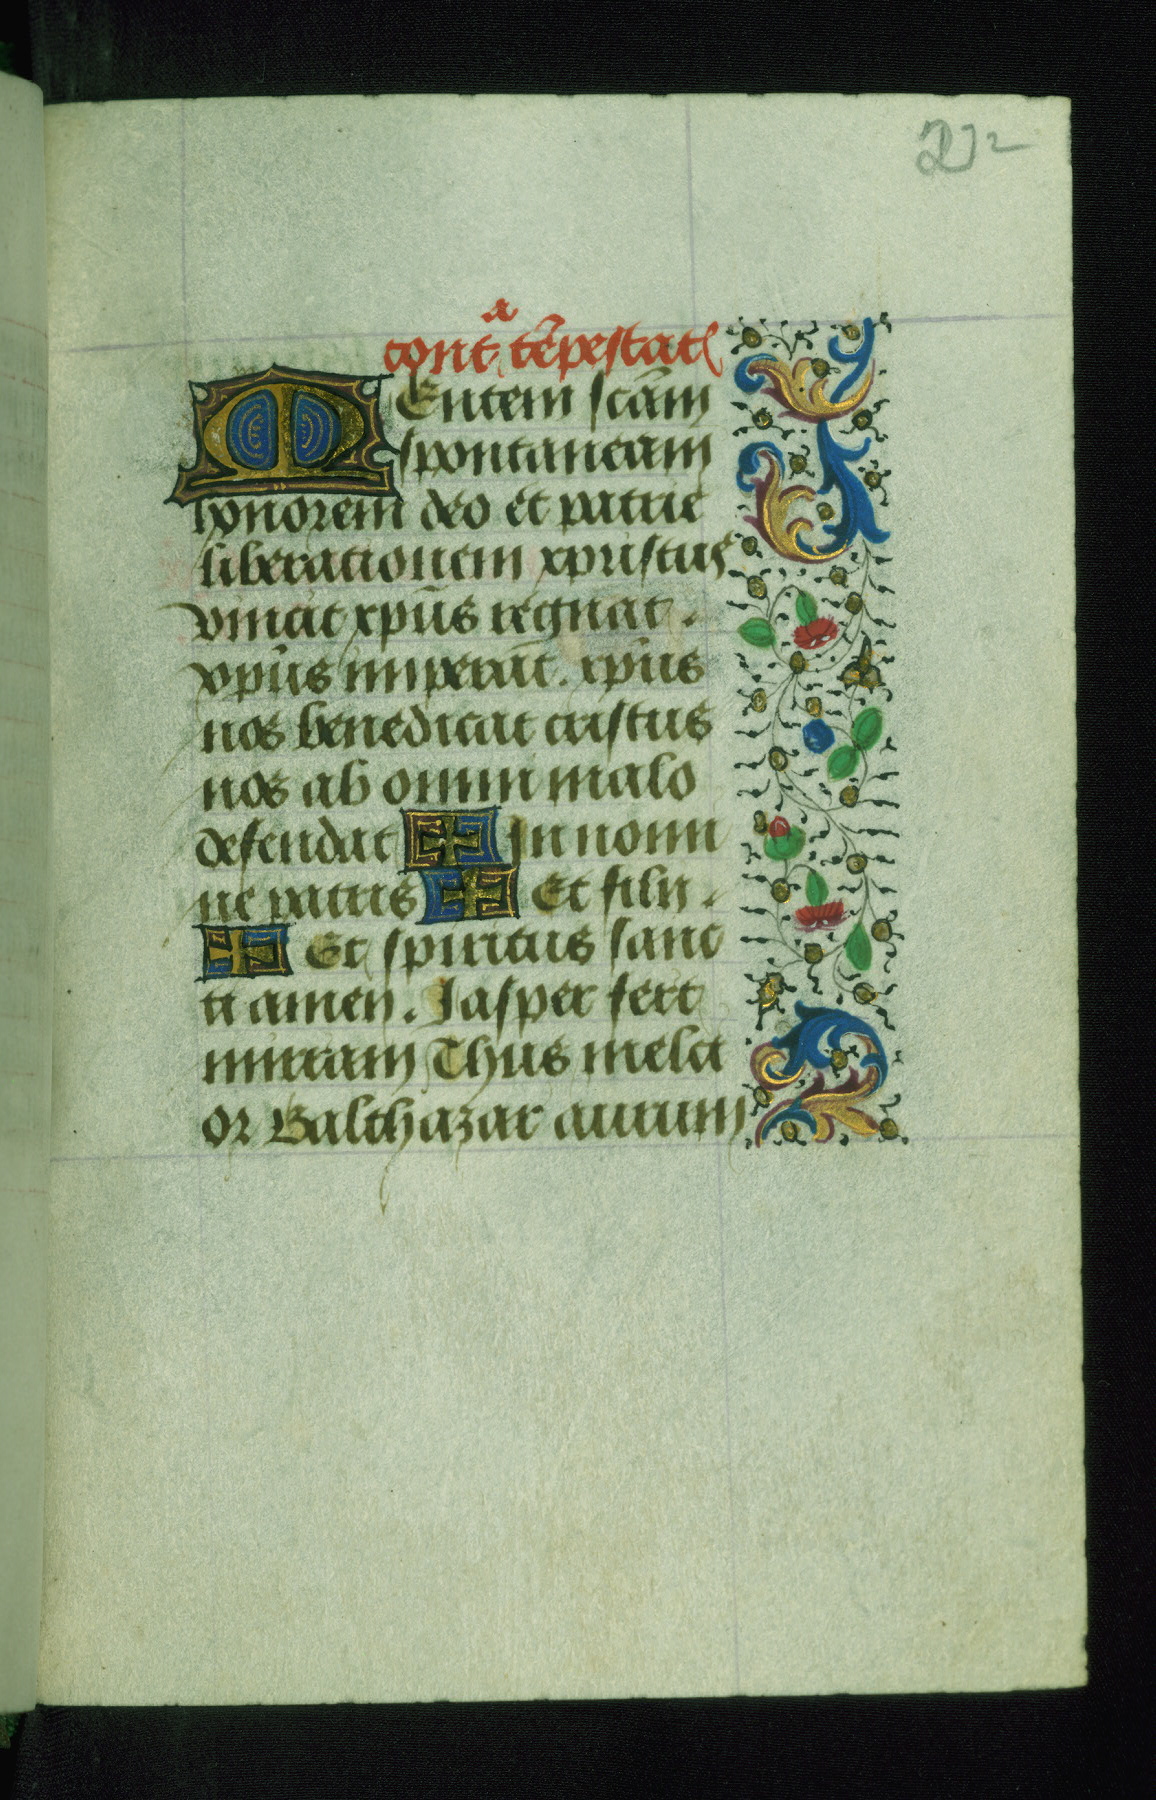 cont^a te͞pestat͛
MEntem sc͞am
spontaneam
honorem deo et patrie
liberationem xpristus
vincit xp͞us regnat .
xp͞us imperat . xp͞us
nos benedicat cristus
nos ab omni malo
defendat ✠ In nomi
ne patris ✠ Et filii .
✠ Et spiritus sanc
ti amen . Jasper fert
mirram Thus melci
or Balthazar aurum